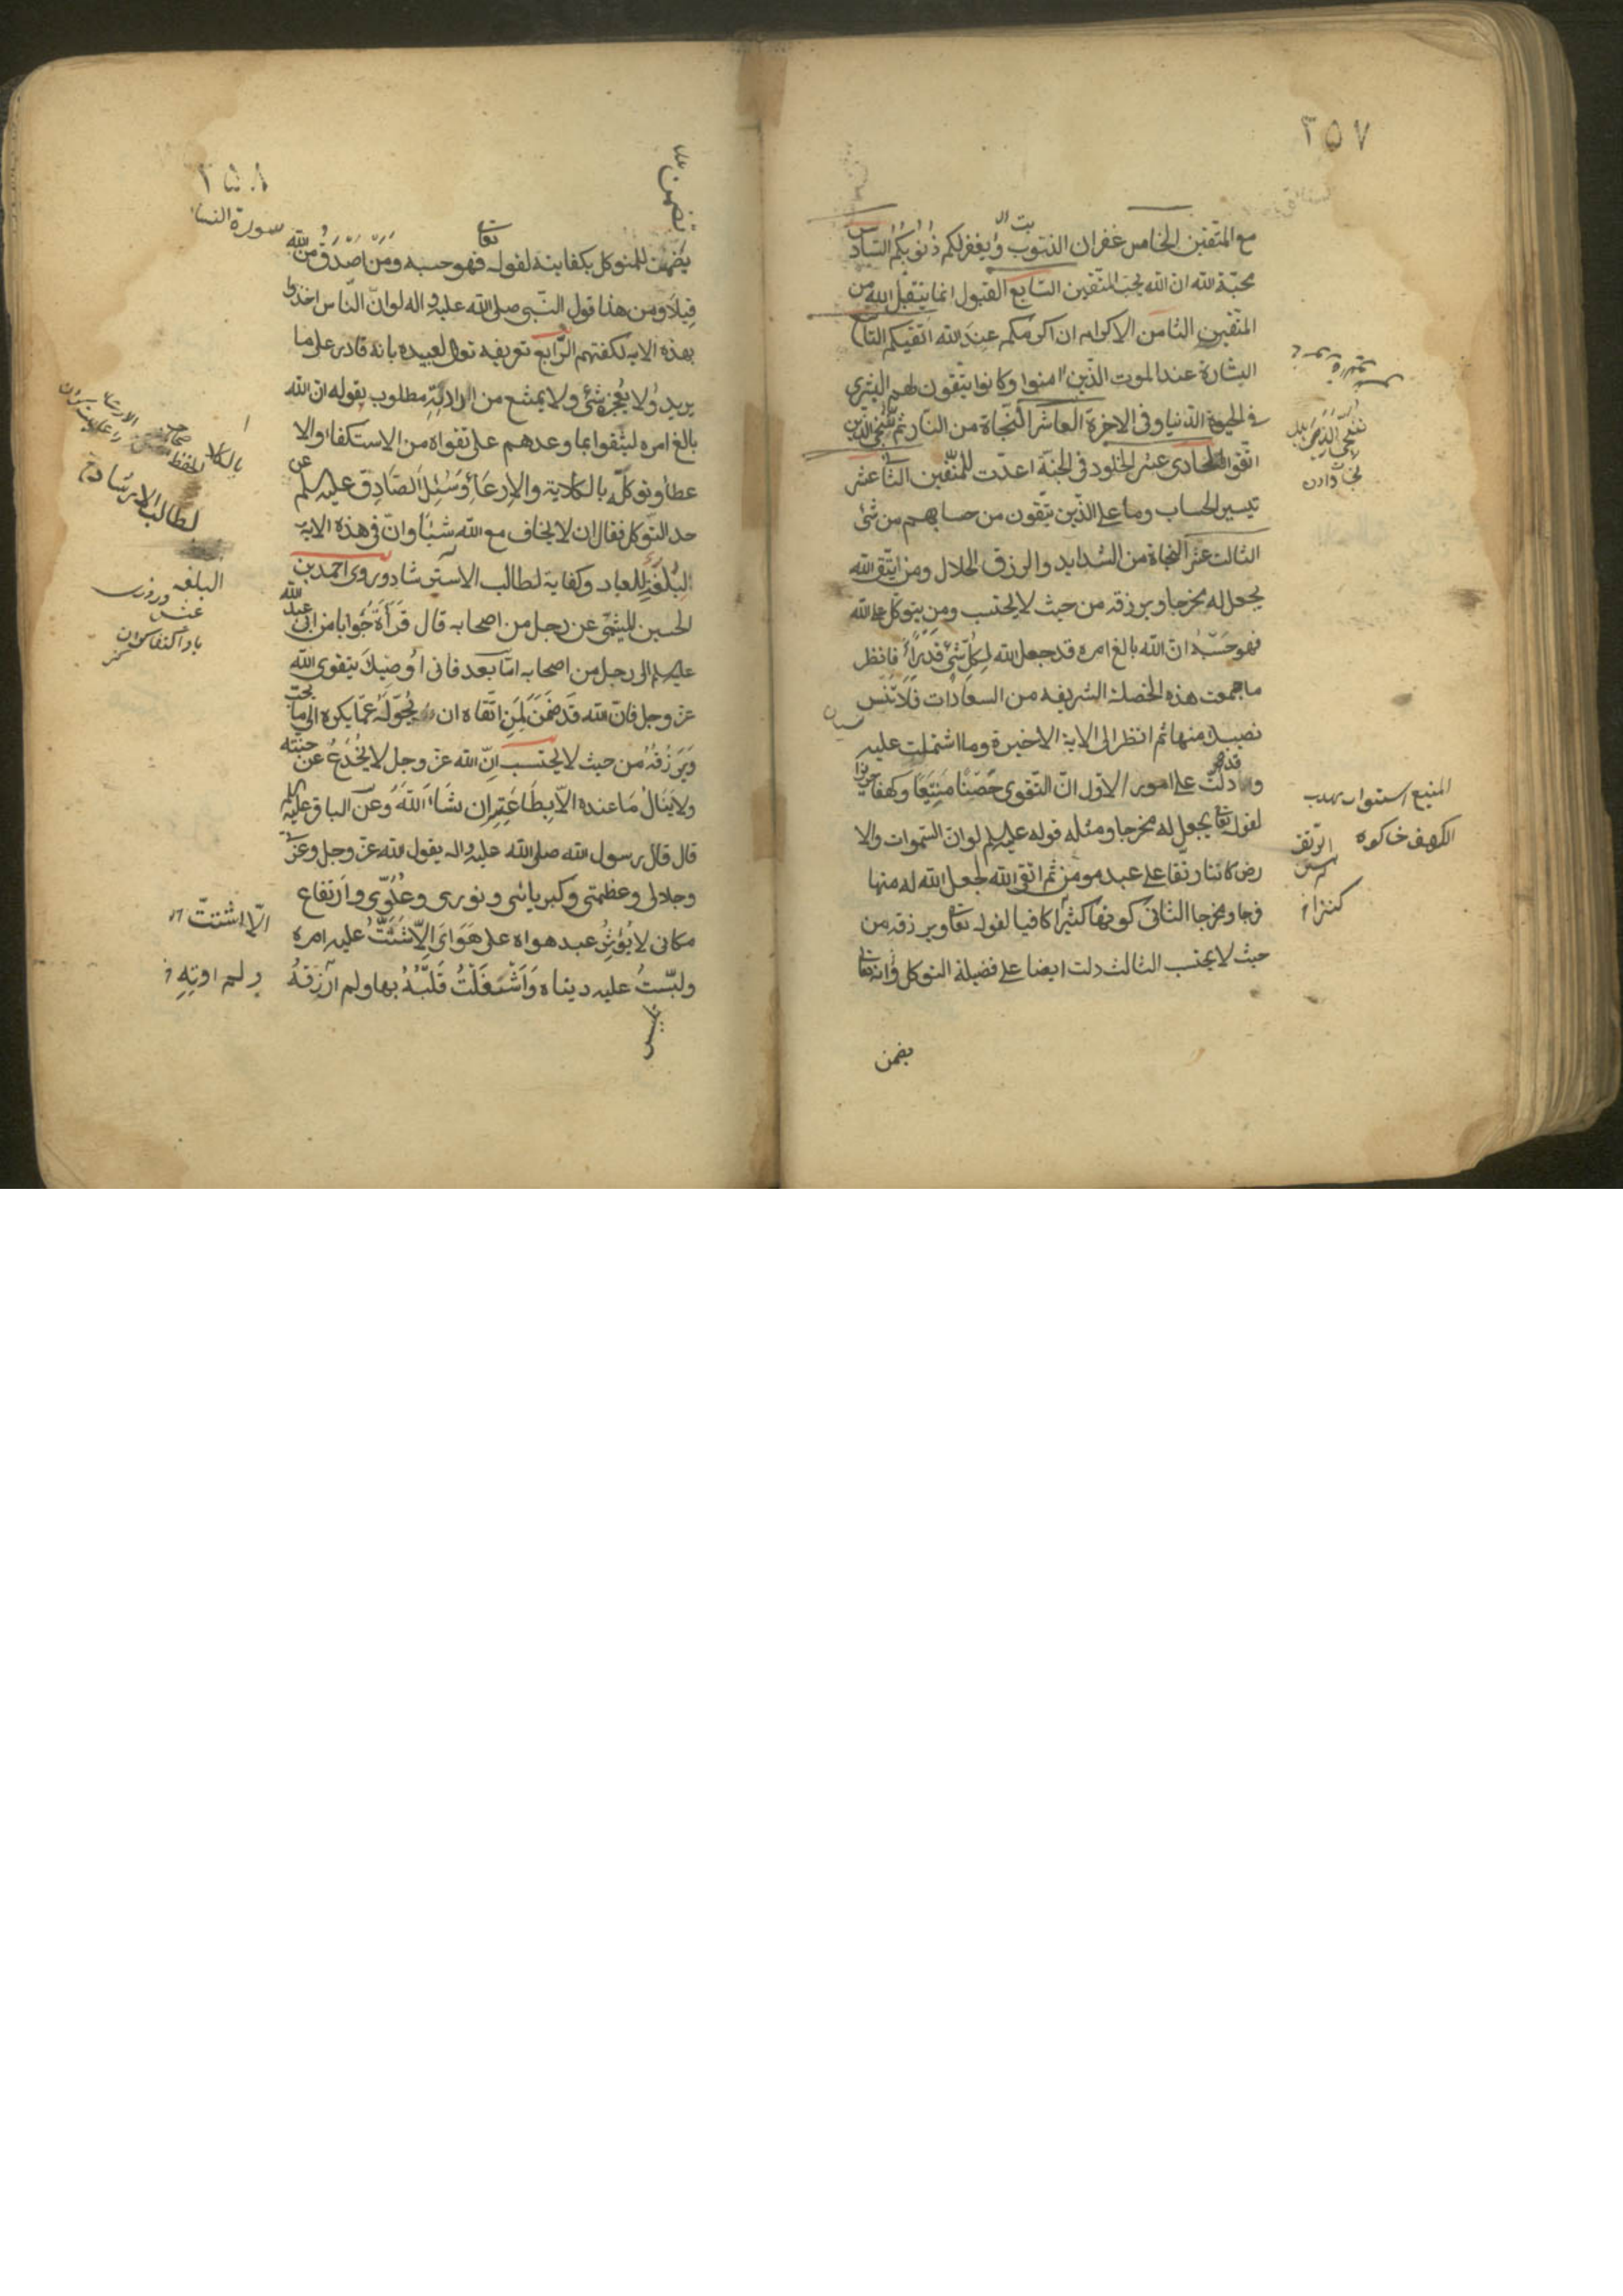 ٢٥٧
مع المتقين الخامس غفران الذنوب ويغفر لكم ذُنُوبكُم السّادس
محبّة الله ان الله يحبّ المتّقين السّابع القبول انما يتقبّل الله من
المتقين الثامن الاكرام ان اكرمكم عند الله اتقيكم التاسع
البشارة عند الموت الذين امنوا وكانوا يتّقون لهم البشرى
فى الحيوة الدّنيا وفى الاخرة العاشر النّجاة من النّار ثمّ نُنجّى الذين
اتّقوا الحادى عشر الخلود فى الجنّة اعدّت للمتّقين الثانى عشر
تيسير الحساب وما على الذّين يتّقون من حسابهم من شئ
الثالث عشر النجاة من الشدايد والرزق الحلال ومن يتّق الله
يجعل له مخرجا ويرزقه من حيث لا يحتسب ومن يتوكّل على الله
فهو حَسبُهُ انّ الله بالغ امره قد جعل الله لِكُلّ شئ قَدْرًا فانظر
ما جمعت هذه الخصلة الشريفه من السعادات فلا تَنْسَ
نصيبك منها ثم انظر الى الاية الاخيرة وما اشتملت عليه
وقد دلّت على امور الاوّل انّ التّقوى حِصْنًا مَنِيعًا وكهفا حريزا
لقوله تعا يجعل له مخرجا ومثله قوله عليه السلم لو ان السّموات والا
رض كانتا رتقا على عبد مومن ثم اتقى الله لجعل الله له منها
فرجا ومخرجا الثانى كونها كنزًا كافيا لقوله تعا ويرزقه من
حيث لا يحتسب الثالث دلت ايضا على فضيلة التوكل وانه تعالى
يضمن
نُنَجّى الذين
نجات دادن
المنيع استوار
الكهف
الرّتق
كنزا
٢٥٨
سورة النساء
يضمن للمتوكل بكفايته لقوله تعالى فهو حسبه وَمَنْ اَصْدَقُ مِنَ الله
قِيلاً ومن هذا قول النّبى صلى الله عليه واله لو انّ النّاس اخذوا
بهذه الايه لكفتهم الرّابع تعريفه تعالى لعبيده بانه قادر على ما
يريد ولا يُعْجِزه شئ ولا يمتنع من ارادته مطلوب بقوله ان الله
بالغ امره ليثقوا بما وعدهم على تقواه من الاستكفاء والا
عطاء وتوكلّه بالكلاية والارعاء وَسُئِلَ الصَّادِق عليه السلم عن
حد التّوكل فقال ان لا يخاف مع الله شيئًا وانّ فى هذه الايه
لبُلْغَة للعباد وكفاية لطالب الاسترشاد وروى احمد بن
الحسين الميثمى عن رجل من اصحابه قال قَرَأتُ جَوابا من ابى عبد الله
عليه السلم الى رجل من اصحابه امّا بعد فانى اُوصِيكَ بتقوى الله
عز وجل فان الله قَد ضَمِنَ لِمَنِ اتّقاه ان يُحَوّلَهُ عَمّا يكره الى ما يحبّ
وَيَرْزُقَهُ من حيث لا يحتسب اِنّ الله عز وجل لا يُخْدَعُ عن جنّته
ولا يَنَالُ مَا عنده الاّ بِطَاعَتِهِ ان شَاءَ اللهُ وَعَنِ الباقر عليه السلم
قال قال رسول الله صلى الله عليه واله يقول الله عز وجل وعزّتى
وجلالى وعظمتى وكبريائى ونورى وعُلُوّى وارتفاع
مكانى لا يُؤثِرُ عبد هواه على هَوَاىَ اِلاّ شَتَّتُّ عليه امره
ولبّستُ عليه ديناه وَاَشْغَلْتُ قَلْبَهُ بها ولم اَرْزِقهُ
لطالب الارشاد
البلغه
الاّ اشتتّ
ولم اوتِهِ